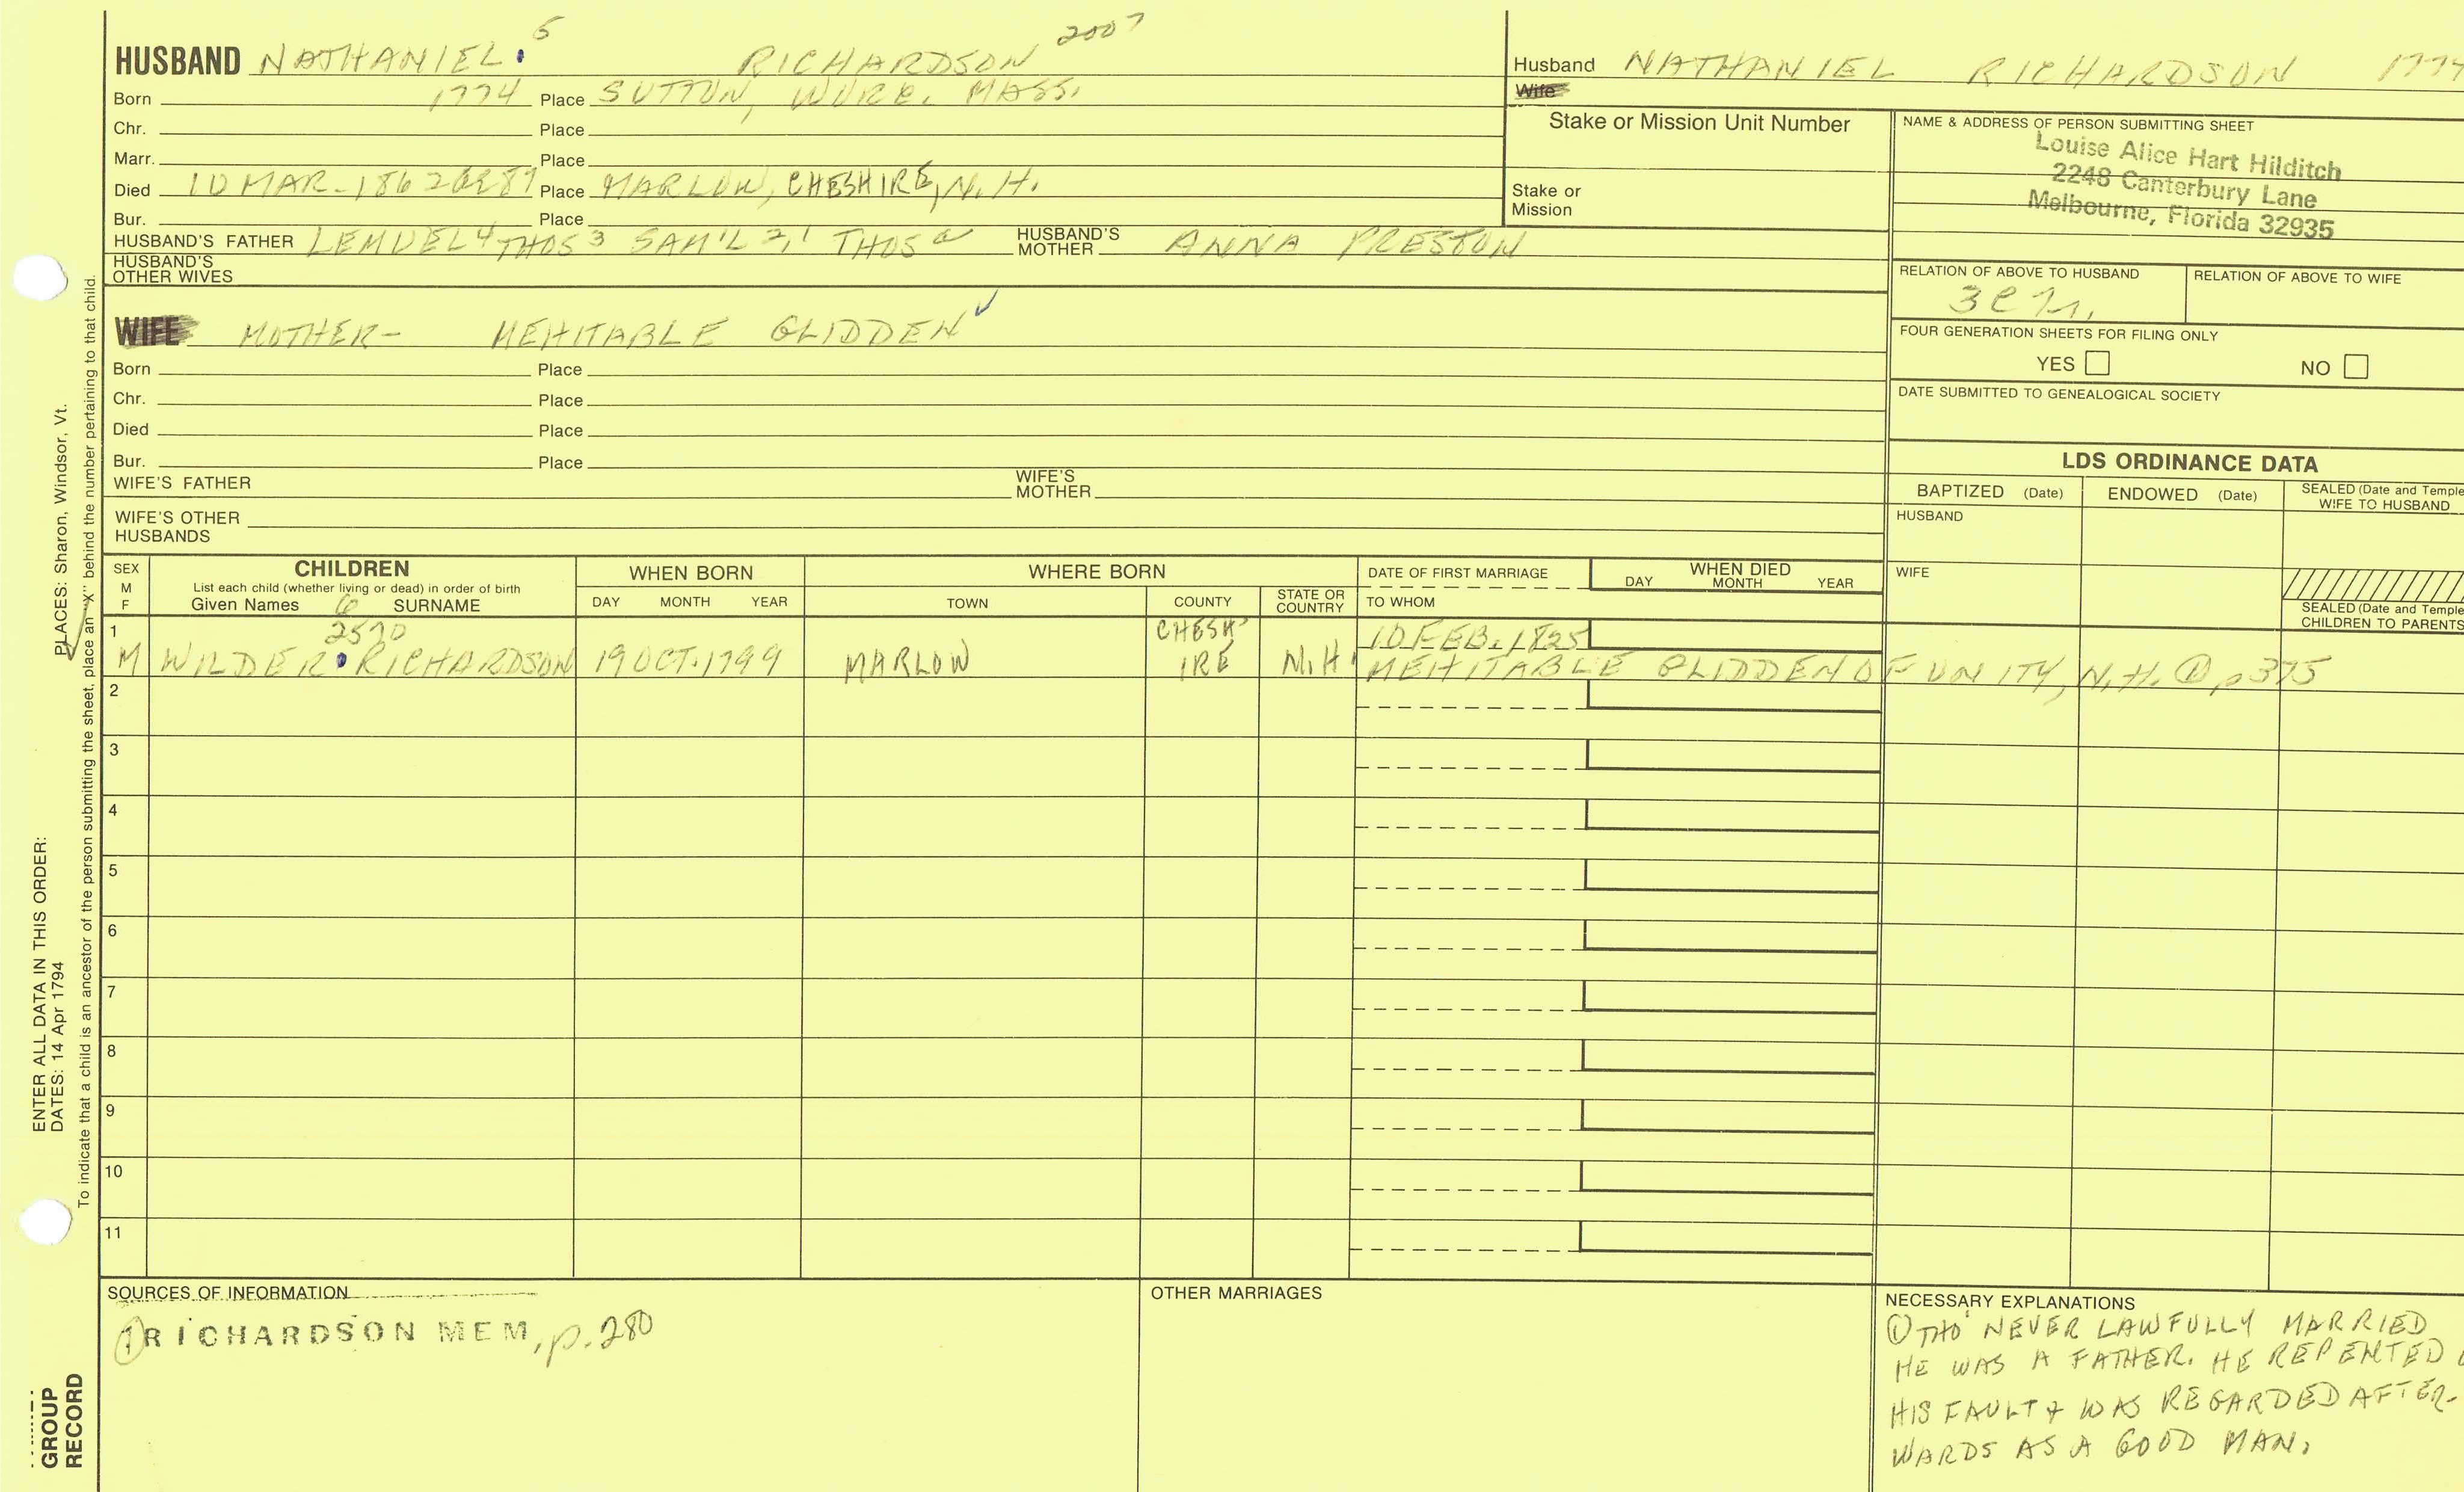 HUSBAND NATHANIEL. 5 RICHARDSON 2007
Born 1774 Place SUTTON, WORC. MASS.
Chr. Place
Marr. Place
Died 10 MAR. 1862 Æ 87 Place MARLOW, CHESHIRE, N.H.
Bur. Place
HUSBAND'S FATHER LEMUEL 4 THOS 3 SAM'L 2, 1 THOS HUSBAND'S MOTHER ANNA PRESTON
HUSBAND'S OTHER WIVES
Husband NATHANIEL RICHARDSON 1774
Wife
Stake or Mission Unit Number
Stake or Mission
NAME & ADDRESS OF PERSON SUBMITTING SHEET
Louise Alice Hart Hilditch
2248 Canterbury Lane
Melbourne, Florida 32935
RELATION OF ABOVE TO HUSBAND RELATION OF ABOVE TO WIFE
FOUR GENERATION SHEETS FOR FILING ONLY
YES NO
DATE SUBMITTED TO GENEALOGICAL SOCIETY
WIFE MOTHER- MEHITABLE GLIDDEN ✓
Born Place
Chr. Place
Died Place
Bur. Place
WIFE'S FATHER WIFE'S MOTHER
WIFE'S OTHER HUSBANDS
LDS ORDINANCE DATA
BAPTIZED (Date) ENDOWED (Date) SEALED (Date and Temple
WIFE TO HUSBAND
HUSBAND
WIFE
SEALED (Date and Temple
CHILDREN TO PARENTS
SEX M F
CHILDREN
List each child (whether living or dead) in order of birth
Given Names 6 SURNAME
WHEN BORN
DAY MONTH YEAR
WHERE BORN
TOWN COUNTY STATE OR COUNTRY
DATE OF FIRST MARRIAGE
TO WHOM
WHEN DIED
DAY MONTH YEAR
1 2570 CHESH' 10 FEB. 1825
M WILDER. RICHARDSON 19 OCT. 1799 MARLOW IRE N.H. MEHITABLE GLIDDEN OF UNITY, N.H. ① p 375
2
3
4
5
6
7
8
9
10
11
SOURCES OF INFORMATION
① RICHARDSON MEM, p. 280
OTHER MARRIAGES
NECESSARY EXPLANATIONS
① THO' NEVER LAWFULLY MARRIED
HE WAS A FATHER. HE REPENTED
HIS FAULT & WAS REGARDED AFTER-
WARDS AS A GOOD MAN.
ENTER ALL DATA IN THIS ORDER:
DATES: 14 Apr 1794
PLACES: Sharon, Windsor, Vt.
To indicate that a child is an ancestor of the person submitting the sheet, place an "X" behind the number pertaining to that child.
GROUP
RECORD